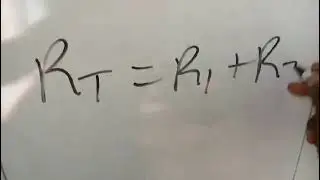 R_T = R_1 + R_2